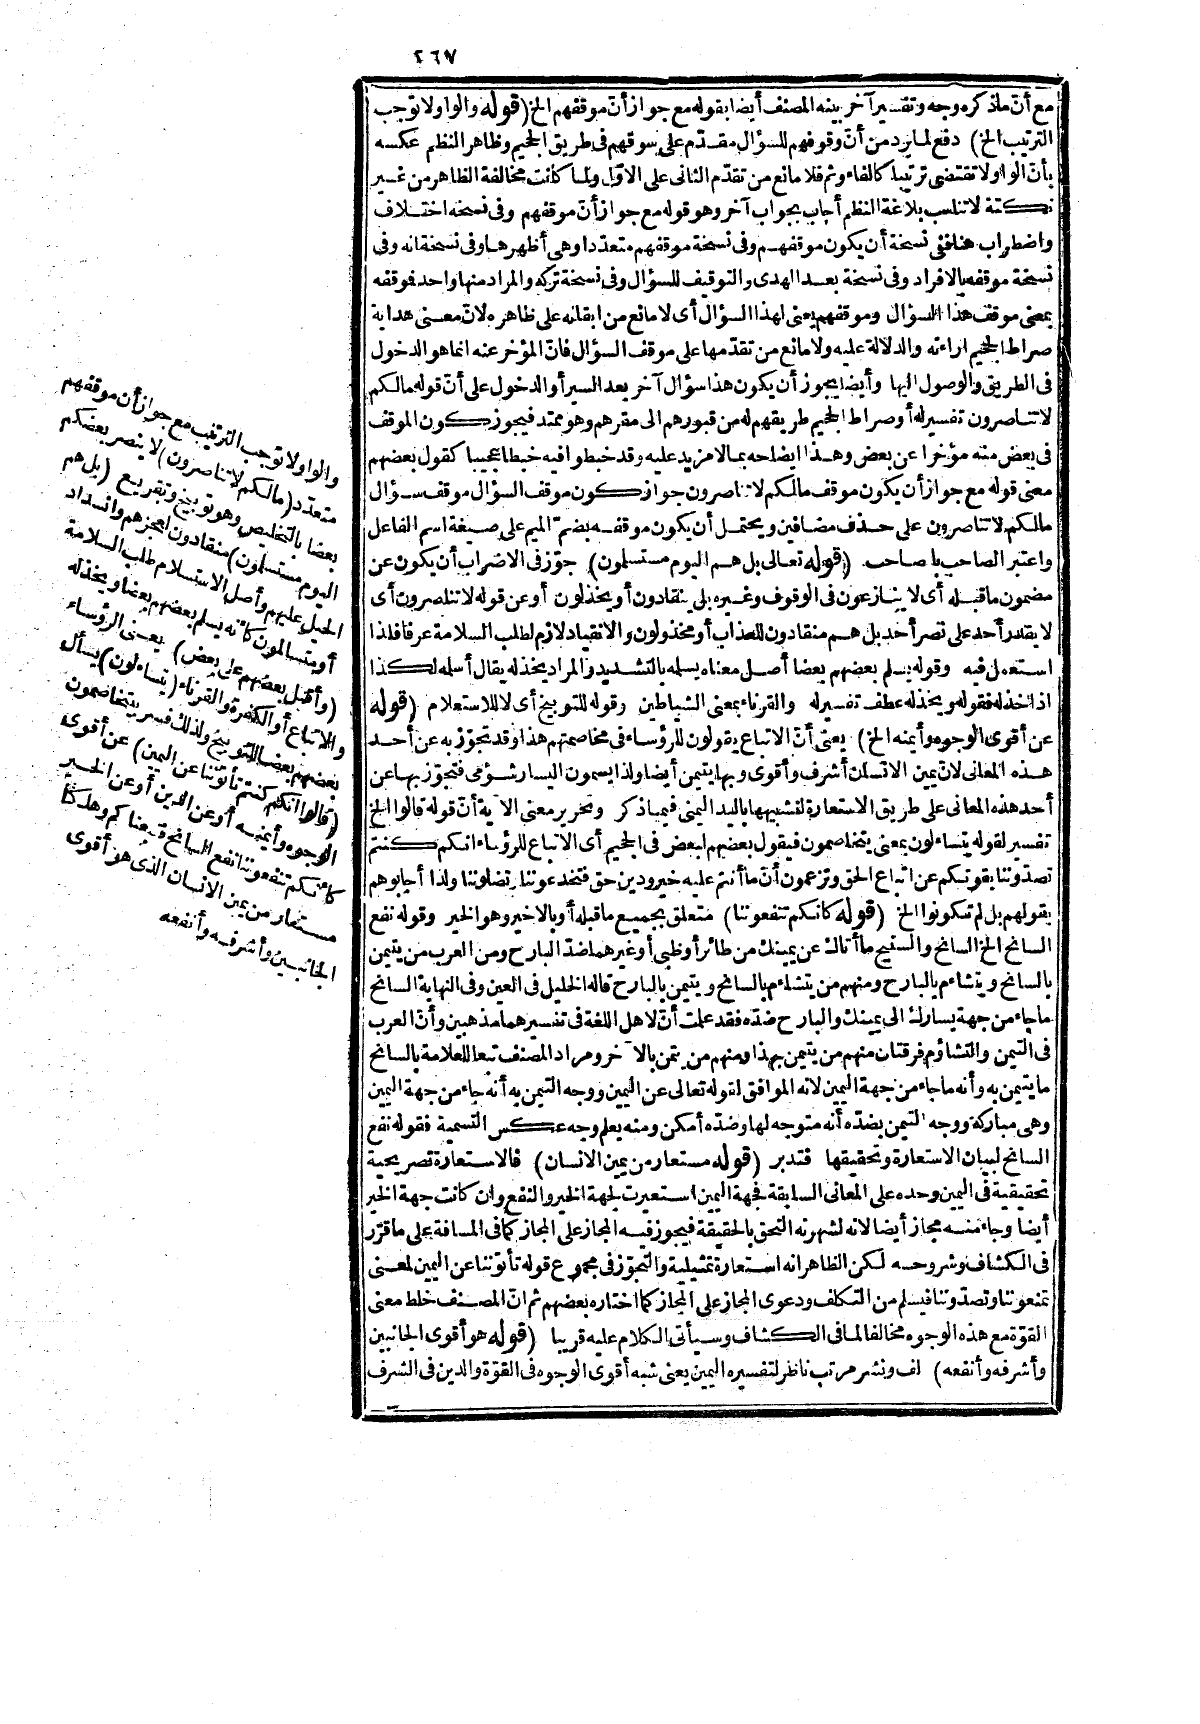 ٢٦٧
مع أنّ ماذكره وجه وتفسير آخر بينه المصنف أيضا بقوله مع جواز أنّ موقفهم الخ (قوله والواو لا توجب
الترتيب الخ) دفع لما يرد من أنّ وقوفهم للسؤال مقدّم على سوقهم في طريق الجحيم وظاهر النظم عكسه
بأنّ الواو لا تقتضي ترتيبا كالفاء وثم فلا مانع من تقدّم الثاني على الاوّل ولما كانت مخالفة الظاهر من غير
نكتة لا تناسب بلاغة النظم أجاب بجواب آخر وهو قوله مع جواز أنّ موقفهم وفي نسخه اختلاف
واضطراب هنا ففي نسخة أن يكون موقفهم وفي نسخة موقفهم متعدّدا وهي أظهرها وفي نسخة انه وفي
نسخة موقفه بالافراد وفي نسخة بعد الهدى والتوقيف للسؤال وفي نسخة تركه والمراد منها واحد فوقفه
بمعنى موقف هذا السؤال وموقفهم يعني لهذا السؤال أى لا مانع من ابقائه على ظاهره لانّ معنى هداية
صراط الجحيم اراءته والدلالة عليه ولا مانع من تقدّمها على موقف السؤال فانّ المؤخر عنه انما هو الدخول
في الطريق والوصول اليها وأيضا يجوز أن يكون هذا سؤال آخر بعد السير أو الدخول على أنّ قوله مالكم
لا تناصرون تفسير له أو صراط الجحيم طريقهم له من قبورهم الى مقرهم وهو ممتد فيجوز كون الموقف
في بعض منه مؤخرا عن بعض وهذا ايضاحه بما لا مزيد عليه وقد خبطوا فيه خبطا عجيبا كقول بعضهم
معنى قوله مع جواز أن يكون موقف مالكم لا تناصرون جواز كون موقف السؤال موقف سؤال
مالكم لا تناصرون على حذف مضافين ويحتمل أن يكون موقفه بضم الميم على صيغة اسم الفاعل
واعتبر الصاحب يا صاحب (قوله تعالى بل هم اليوم مستسلمون) جوّز في الاضراب أن يكون عن
مضمون ما قبله أى لا ينازعون في الوقوف وغيره بل ينقادون أو يخذلون أو عن قوله لا تناصرون أى
لا يقدر أحد على نصر أحد بل هم منقادون للعذاب أو مخذولون والانقياد لازم لطلب السلامة عرفا فلذا
استعمل فيه وقوله يسلم بعضهم بعضا أصل معناه يسلمه بالتشديد والمراد يخذله يقال أسلمه لكذا
اذا خذله فقوله ويخذله عطف تفسير له والقرناء بمعنى الشياطين وقوله للتوبيخ أى لا للاستعلام (قوله
عن أقوى الوجوه وأيمنه الخ) يعني أنّ الاتباع يقولون للرؤساء في مخاصمتهم هذا وقد تجوّز به عن أحد
هذه المعاني لانّ يمين الانسان أشرف وأقوى وبها يتيمن أيضا ولذا يسمون اليسار شؤمى فتجوّز بها عن
أحد هذه المعاني على طريق الاستعارة لتشبيهها باليد اليمنى فيما ذكر وتحرير معنى الآية أنّ قوله قالوا الخ
تفسير لقوله يتساءلون بمعنى يتخاصمون فيقول بعضهم لبعض في الجحيم أى الاتباع للرؤساء انكم كنتم
تصدّوننا بقوتكم عن اتباع الحق وتزعمون أنّ ما أنتم عليه خير ودين حق فتخدعوننا وتضلوننا ولذا أجابوهم
بقولهم بل لم تكونوا الخ (قوله كانكم تنفعوننا) متعلق بجميع ما قبله أو بالاخير وهو الخير وقوله نفع
السانح الخ السانح والسنيح ما أتاك عن يمينك من طائر أو ظبي أو غيرهما ضدّ البارح ومن العرب من يتيمن
بالسانح ويتشاءم بالبارح ومنهم من يتشاءم بالسانح ويتيمن بالبارح قاله الخليل في العين وفي النهاية السانح
ماجاء من جهة يسارك الى يمينك والبارح ضدّه فقد علمت أنّ لاهل اللغة في تفسيرهما مذهبين وأنّ العرب
في التيمن والتشاؤم فرقتان منهم من يتيمن بهذا ومنهم من يتيمن بالآخر ومراد المصنف تبعا للعلامة بالسانح
ما يتيمن به وأنه ماجاء من جهة اليمين لانه الموافق لقوله تعالى عن اليمين ووجه التيمن به أنه جاء من جهة اليمين
وهي مباركة ووجه التيمن بضدّه أنه متوجه لها وضدّه أمكن ومنه يعلم وجه عكس التسمية فقوله نفع
السانح لبيان الاستعارة وتحقيقها فتدبر (قوله مستعار من يمين الانسان) فالاستعارة تصريحية
تحقيقية في اليمين وحده على المعاني السابقة فجهة اليمين استعيرت لجهة الخير والنفع وان كانت جهة الخير
أيضا وجاء منه مجاز أيضا لانه لشهرته التحق بالحقيقة فيجوز فيه المجاز على المجاز كما في المسافة على ما قرّر
في الكشاف وشروحه لكن الظاهر انه استعارة تمثيلية والتجوّز في مجموع قوله تأتوننا عن اليمين لمعنى
تمنعوننا وتصدّوننا فيسلم من التكلف ودعوى المجاز على المجاز كما اختاره بعضهم ثم انّ المصنف خلط معنى
القوّة مع هذه الوجوه مخالفا لما في الكشاف وسيأتي الكلام عليه قريبا (قوله هو أقوى الجانبين
وأشرفه وأنفعه) لف ونشر مرتب ناظر لتفسيره اليمين يعني شبه أقوى الوجوه في القوّة والدين في الشرف
والواو لا توجب الترتيب مع جواز أن موقفهم
متعدّد (مالكم لا تناصرون) لا ينصر بعضكم
بعضا بالتخليص وهو توبيخ وتقريع (بل هم
اليوم مستسلمون) منقادون لعجزهم وانسداد
الحيل عليهم وأصل الاستسلام طلب السلامة
أو متسالمون كأنه يسلم بعضهم بعضا ويخذله
(وأقبل بعضهم على بعض) يعني الرؤساء
والاتباع أو الكفرة والقرناء (يتساءلون) يسأل
بعضهم بعضا للتوبيخ ولذلك فسر بيتخاصمون
(قالوا انكم كنتم تأتوننا عن اليمين) عن أقوى
الوجوه وأيمنه أو عن الدين أو عن الخير
كانكم تنفعوننا نفع السانح فتبعناكم وهلكنا
مستعار من يمين الانسان الذى هو أقوى
الجانبين وأشرفه وأنفعه